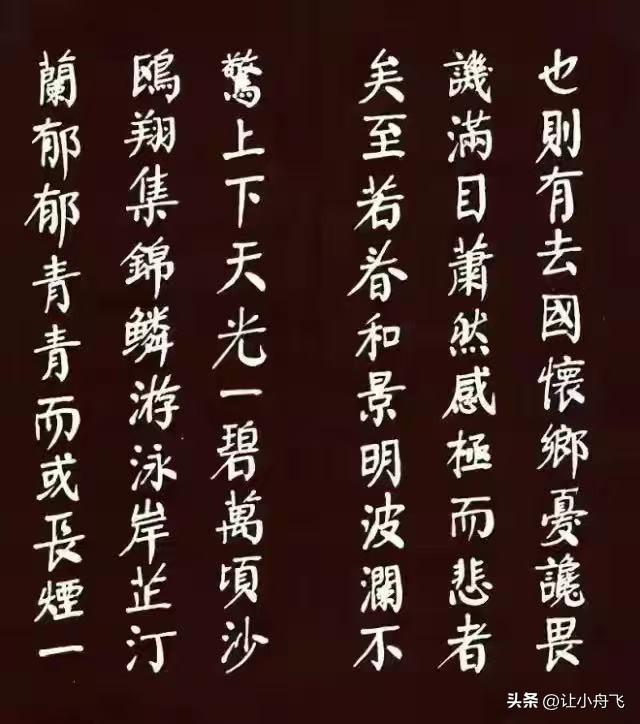 也則有去國懷鄉憂讒畏
譏滿目蕭然感極而悲者
矣至若春和景明波瀾不
驚上下天光一碧萬頃沙
鷗翔集錦鱗游泳岸芷汀
蘭郁郁青青而或長煙一
头条 @让小舟飞